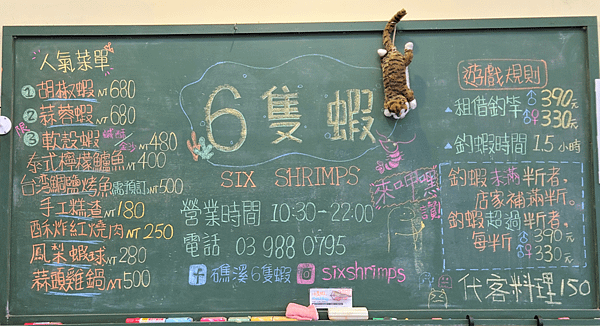 人氣菜單
① 胡椒蝦 NT 680
② 蒜蓉蝦 NT 680
限 ③ 軟殼蝦 鹹酥 金沙 NT 480
泰式檸檬鱸魚 NT 400
台灣鯛鹽烤魚 需預訂 NT 500
手工糕渣 NT 180
酥炸紅燒肉 NT 250
鳳梨蝦球 NT 280
蒜頭雞鍋 NT 500
6隻蝦
SIX SHRIMPS
營業時間 10:30-22:00
電話 03 988 0795
f 礁溪6隻蝦 sixshrimps
來呷蝦
讚
遊戲規則
▲租借釣竿 ♂390元
♂♀330元
▲釣蝦時間 1.5小時
釣蝦未滿半斤者,
店家補滿半斤。
釣蝦超過半斤者,
每半斤 ♂390元
♂♀330元
代客料理150